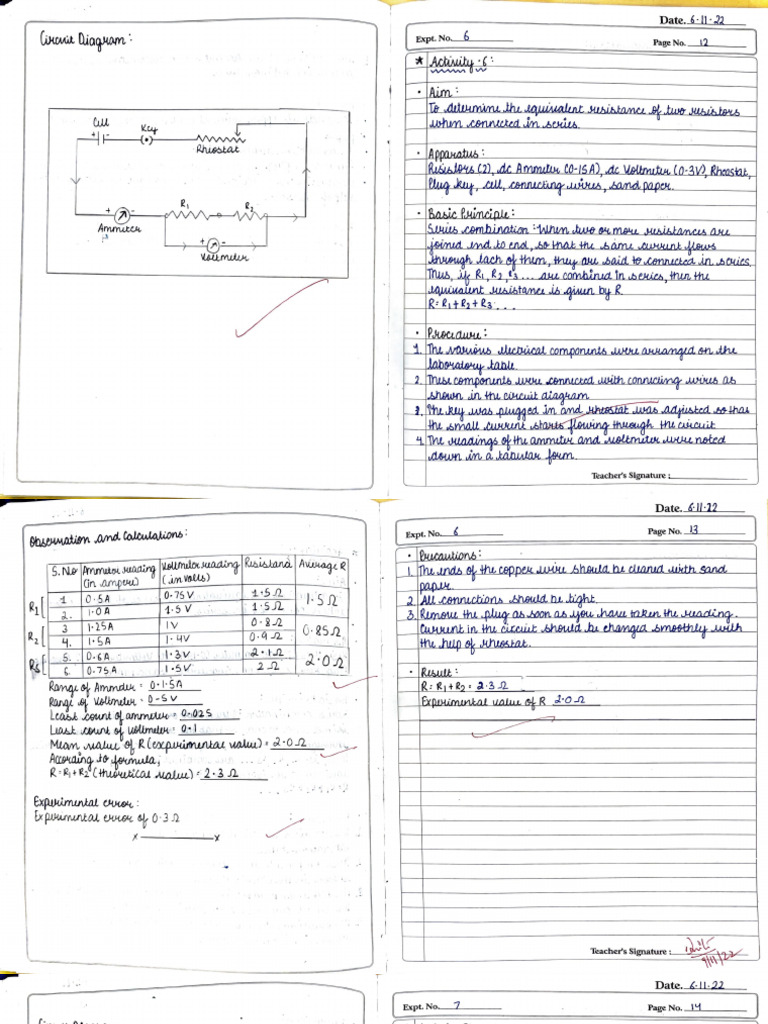 Circuit Diagram:
Cell
Key
Rheostat
R1
R2
Ammeter
Voltmeter
Date. 6-11-22
Expt. No. 6
Page No. 12
* Activity-6:
• Aim:
To determine the equivalent resistance of two resistors
when connected in series.
• Apparatus:
Resistors (2), dc Ammeter (0-15A), dc Voltmeter (0-3V), Rheostat,
Plug key, cell, connecting wires, sand paper.
• Basic Principle:
Series combination: When two or more resistances are
joined end to end, so that the same current flows
through each of them, they are said to connected in series.
Thus, if R1, R2, R3... are combined in series, then the
equivalent resistance is given by R.
R= R1+R2+R3...
• Procedure:
1. The various electrical components were arranged on the
laboratory table.
2. These components were connected with connecting wires as
shown in the circuit diagram
3. The key was plugged in and rheostat was adjusted so that
the small current starts flowing through the circuit
4. The readings of the ammeter and voltmeter were noted
down in a tabular form.
Teacher's Signature :
Observation and Calculations:
S.No Ammeter reading (in ampere) Voltmeter reading (in volts) Resistance Average R
R1 1. 0.5A 0.75V 1.5Ω 1.5Ω
2. 1.0A 1.5V 1.5Ω
R2 3 1.25A 1V 0.8Ω 0.85Ω
4. 1.5A 1.4V 0.9Ω
Rs 5. 0.6A 1.3V 2.1Ω 2.0Ω
6. 0.75A 1.5V 2Ω
Range of Ammeter = 0-1.5A
Range of Voltmeter = 0-5V
Least count of ammeter = 0.025
Least count of voltmeter = 0.1
Mean value of R (experimental value) = 2.0Ω
According to formula,
R= R1+R2 (theoretical value) = 2.3Ω
Experimental error:
Experimental error of 0.3Ω
x x
Date. 6-11-22
Expt. No. 6
Page No. 13
• Precautions:
1. The ends of the copper wire should be cleaned with sand
paper.
2. All connections should be tight.
3. Remove the plug as soon as you have taken the reading.
Current in the circuit should be changed smoothly with
the help of rheostat.
• Result:
R= R1+R2 = 2.3Ω
Experimental value of R 2.0Ω
Teacher's Signature :
9/11/22
Date. 6-11-22
Expt. No. 7
Page No. 14